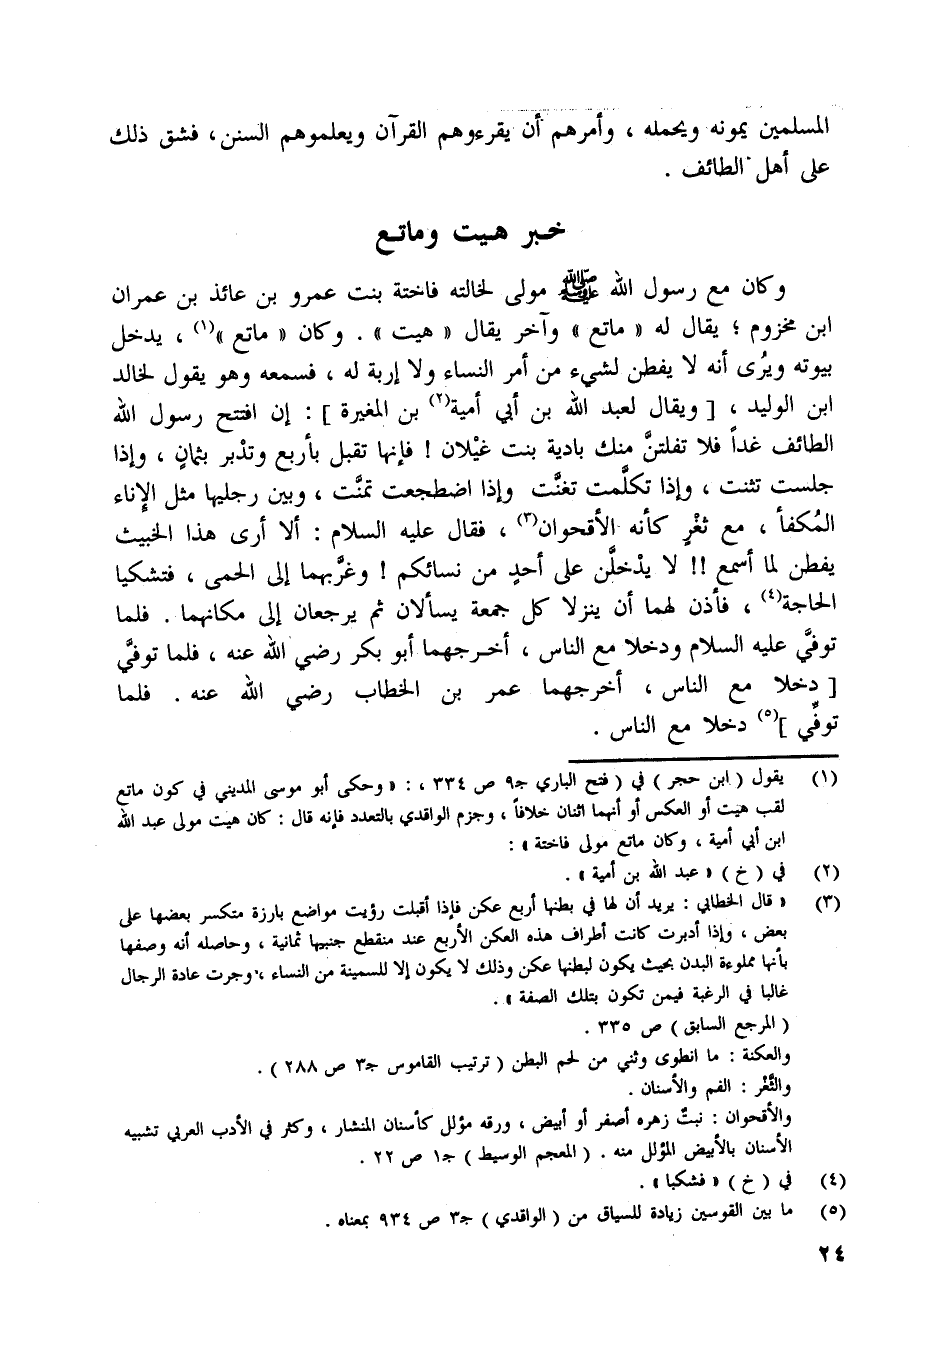 المسلمين يمونه ويحمله ، وأمرهم أن يقرءوهم القرآن ويعلموهم السنن ، فشق ذلك
على أهل الطائف .
خبر هيت وماتع
وكان مع رسول الله ﷺ مولى لخالته فاختة بنت عمرو بن عائذ بن عمران
ابن مخزوم ؛ يقال له « ماتع » وآخر يقال « هيت » . وكان « ماتع »(١) ، يدخل
بيوته ويُرى أنه لا يفطن لشيء من أمر النساء ولا إربة له ، فسمعه وهو يقول لخالد
ابن الوليد ، [ ويقال لعبد الله بن أبي أمية(٢) بن المغيرة ] : إن افتتح رسول الله
الطائف غداً فلا تفلتنَّ منك بادية بنت غيْلان ! فإنها تقبل بأربع وتدْبر بثمانٍ ، وإذا
جلست تثنت ، وإذا تكلَّمت تغنَّت وإذا اضطجعت تمنَّت ، وبين رجليها مثل الإناء
المُكفأ ، مع ثغْرٍ كأنه الأقحوان(٣) ، فقال عليه السلام : ألا أرى هذا الخبيث
يفطن لما أسمع !! لا يدْخلَّن على أحدٍ من نسائكم ! وغرَّبهما إلى الحمى ، فتشكيا
الحاجة(٤) ، فأذن لهما أن ينزلا كل جمعة يسألان ثم يرجعان إلى مكانهما . فلما
توفَّي عليه السلام ودخلا مع الناس ، أخرجهما أبو بكر رضي الله عنه ، فلما توفَّي
[ دخلا مع الناس ، أخرجهما عمر بن الخطاب رضي الله عنه . فلما
توفِّي ](٥) دخلا مع الناس .
(١) يقول ( ابن حجر ) في ( فتح الباري جـ٩ ص ٣٣٤ ، : « وحكى أبو موسى المديني في كون ماتع
لقب هيت أو العكس أو أنهما اثنان خلافاً ، وجزم الواقدي بالتعدد فإنه قال : كان هيت مولى عبد الله
ابن أبي أمية ، وكان ماتع مولى فاختة » :
(٢) في ( خ ) « عبد الله بن أمية » .
(٣) « قال الخطابي : يريد أن لها في بطنها أربع عكن فإذا أقبلت رؤيت مواضع بارزة متكسر بعضها على
بعض ، وإذا أدبرت كانت أطراف هذه العكن الأربع عند منقطع جنبيها ثمانية ، وحاصله أنه وصفها
بأنها مملوءة البدن بحيث يكون لبطنها عكن وذلك لا يكون إلا للسمينة من النساء ، وجرت عادة الرجال
غالبا في الرغبة فيمن تكون بتلك الصفة » .
( المرجع السابق ) ص ٣٣٥ .
والعكنة : ما انطوى وثني من لحم البطن ( ترتيب القاموس جـ٣ ص ٢٨٨ ) .
والثَّغْر : الفم والأسنان .
والأقحوان : نبتٌ زهره أصفر أو أبيض ، ورقه مؤلل كأسنان المنشار ، وكثر في الأدب العربي تشبيه
الأسنان بالأبيض المؤلل منه . ( المعجم الوسيط ) جـ١ ص ٢٢ .
(٤) في ( خ ) « فشكيا » .
(٥) ما بين القوسين زيادة للسياق من ( الواقدي ) جـ٣ ص ٩٣٤ بمعناه .
٢٤